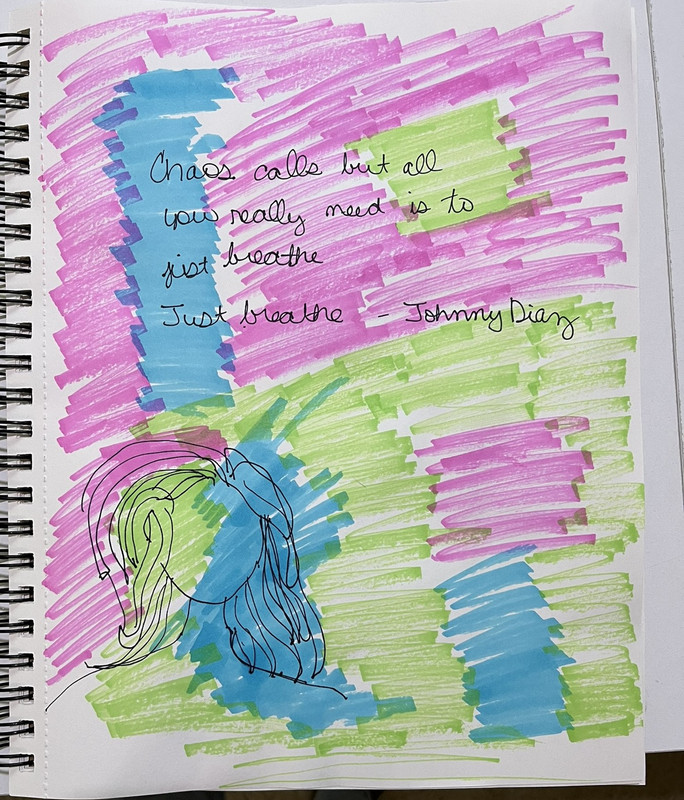 Chaos calls but all
you really need is to
jist breathe
Just breathe - Johnny Diaz